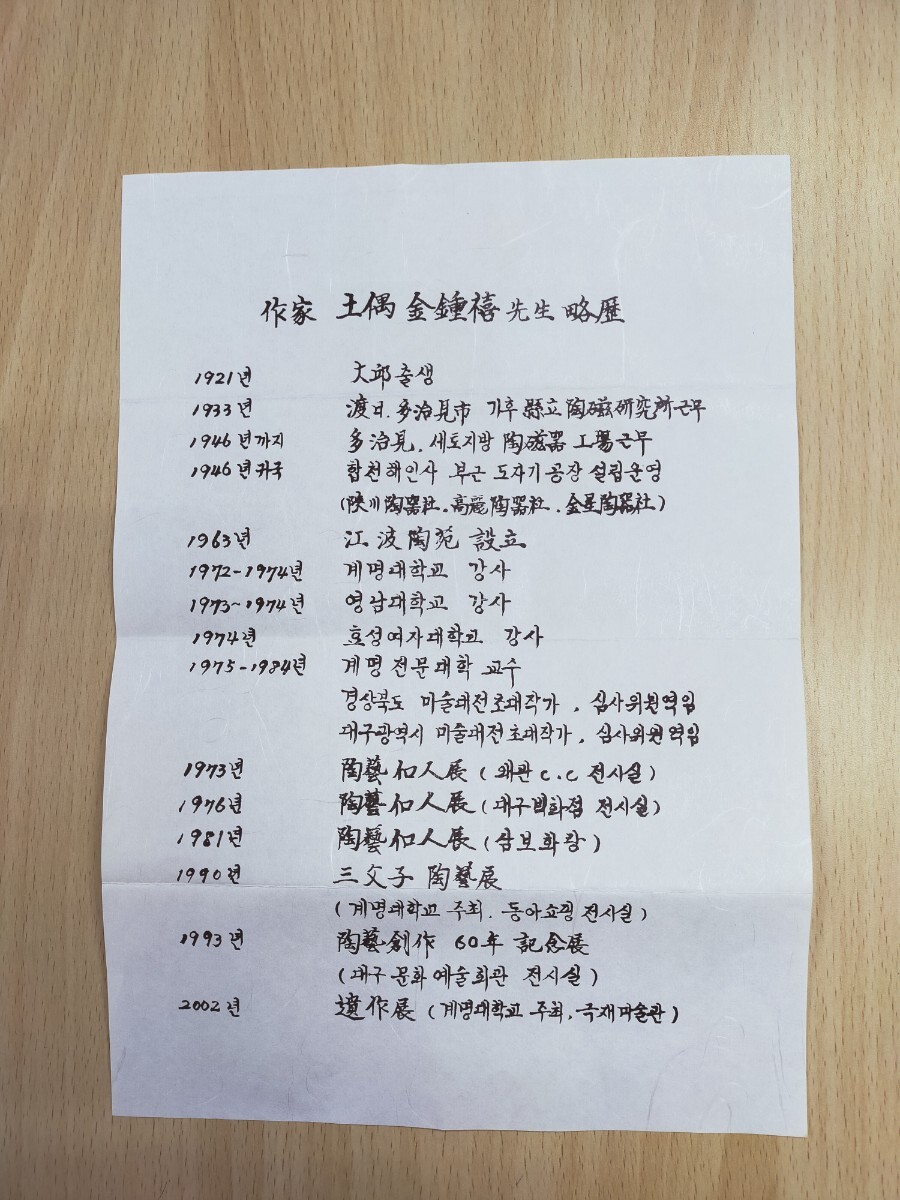 作家 土偶 金鍾禧 先生 略歷
1921년 大邱출생
1933년 渡日. 多治見市 기후 縣立陶磁研究所근무
1946년까지 多治見. 세토지방 陶磁器 工場근무
1946년귀국 합천해인사 부근 도자기공장 설립운영
(陜川陶器社. 高麗陶器社. 金星陶器社)
1963년 江波陶苑 設立
1972-1974년 계명대학교 강사
1973~1974년 영남대학교 강사
1974년 효성여자대학교 강사
1975-1984년 계명 전문대학 교수
경상북도 미술대전초대작가, 심사위원역임
대구광역시 미술대전초대작가, 심사위원역임
1973년 陶藝 個人展 (왜관 c.c 전시실)
1976년 陶藝 個人展 (대구백화점 전시실)
1981년 陶藝 個人展 (삼보화랑)
1990년 三父子 陶藝展
(계명대학교 주최. 동아쇼핑 전시실)
1993년 陶藝創作 60年 記念展
(대구 문화예술회관 전시실)
2002년 遺作展 (계명대학교 주최, 극재미술관)